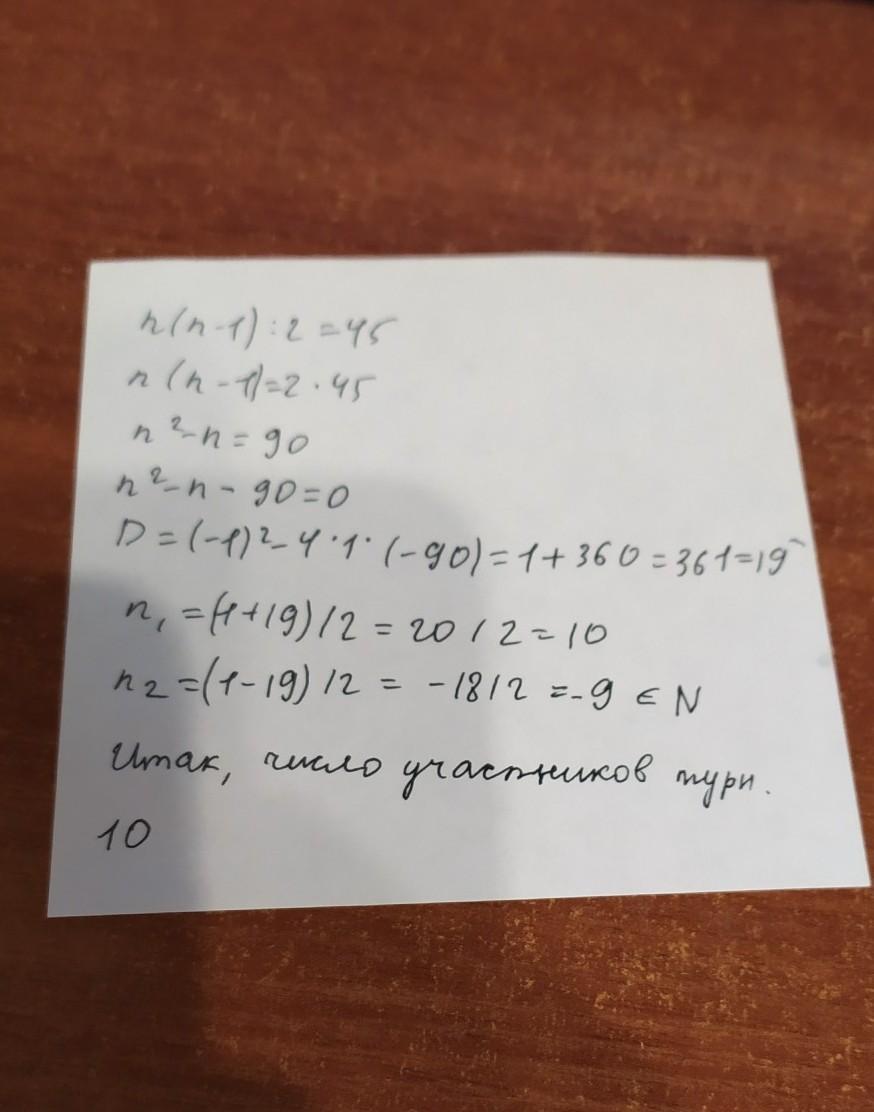 n(n-1):2=45
n(n-1)=2·45
n²-n=90
n²-n-90=0
D=(-1)²-4·1·(-90)=1+360=361=19²
n₁=(1+19)/2=20/2=10
n₂=(1-19)/2=-18/2=-9 ∈ N
Итак, число участников турн.
10